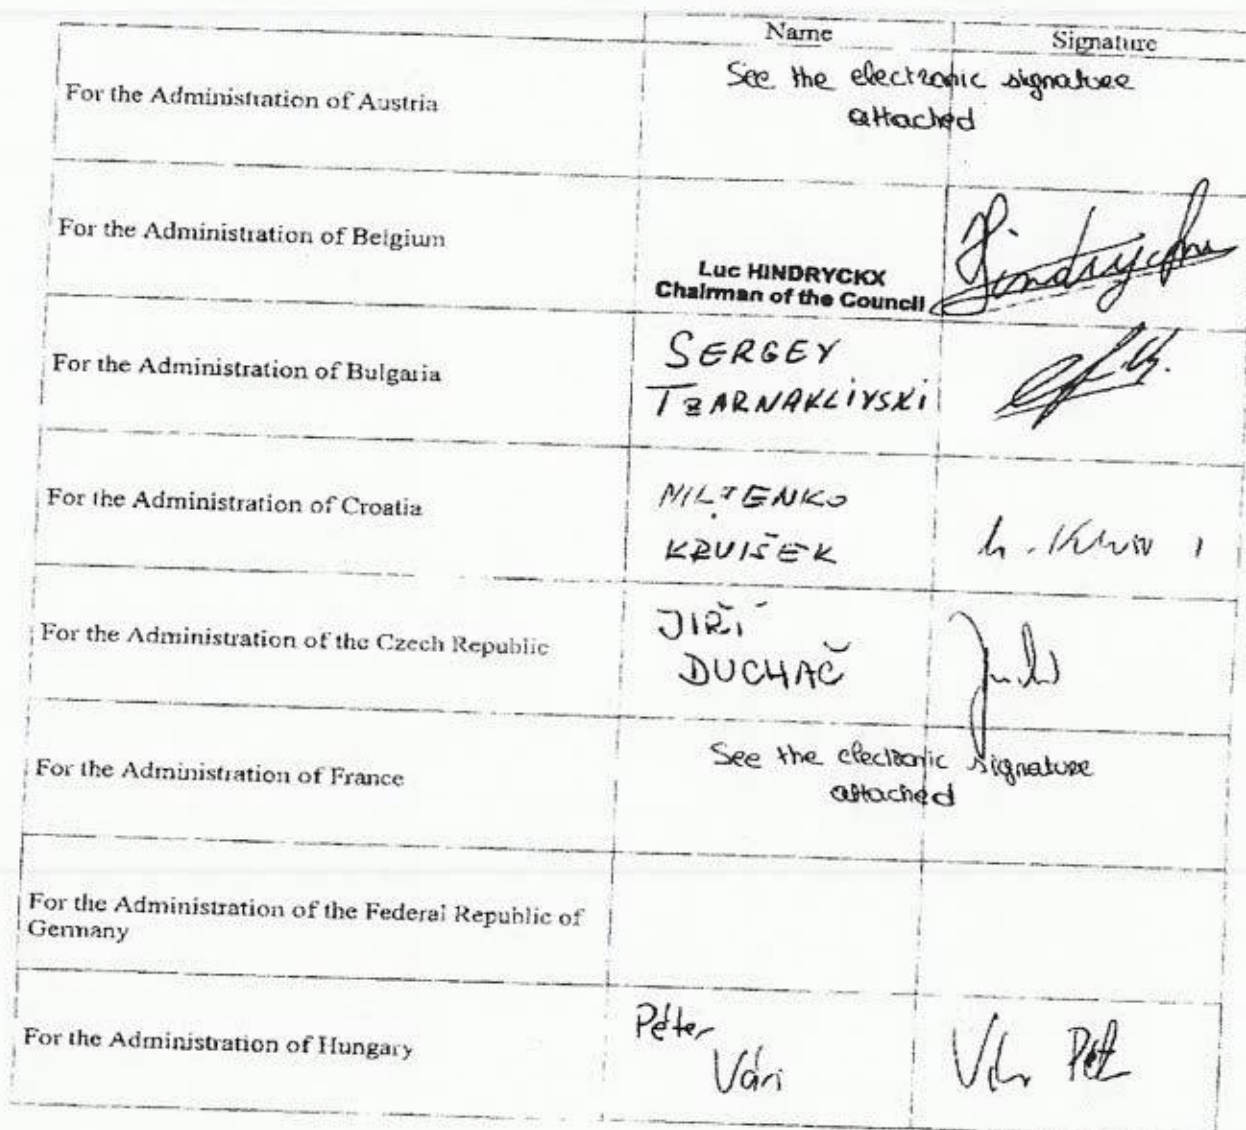 Name Signature
For the Administration of Austria
See the electronic signature
attached
For the Administration of Belgium
Luc HINDRYCKX
Chairman of the Council
Hindryckx
For the Administration of Bulgaria
SERGEY
TZARNAKLIYSKI
For the Administration of Croatia
MILJENKO
KRVIŠEK
For the Administration of the Czech Republic
JIŘÍ
DUCHAČ
For the Administration of France
See the electronic signature
attached
For the Administration of the Federal Republic of
Germany
For the Administration of Hungary
Péter
Vári